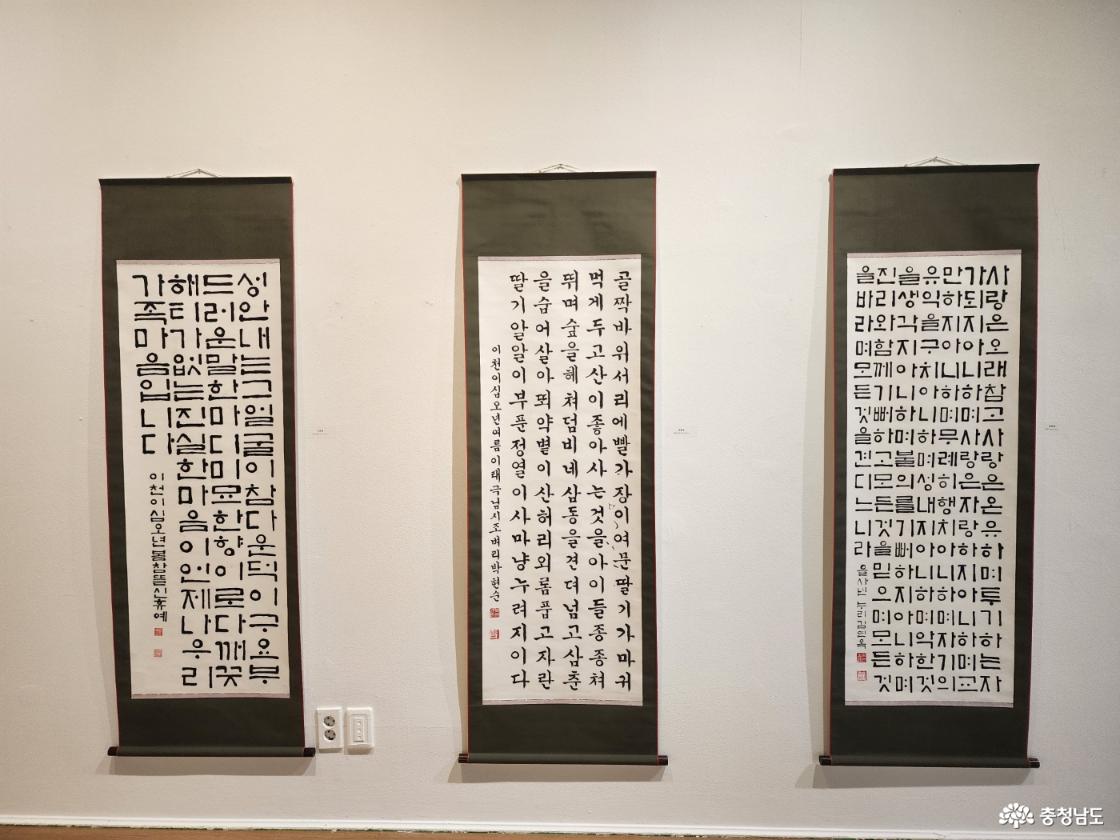 성안내는그얼굴이참다운덕이구요부
드러운말한마디미묘한향이로다깨끗
해티가없는진실한마음이언제나우리
가족마음입니다
이천이십오년봄참뜰신휴예
골짝바위서리에빨가장이여문딸기가마귀
먹게두고산이좋아사는것을아이들종종쳐
뛰며숲을헤쳐덤비네삼동을견뎌넘고삼춘
을숨어살아뙤약볕이산허리외롬품고자란
딸기알알이부푼정열이사마냥누려지이다
이천이십오년여름이태극님시조벼리박현순
사랑은오래참고사랑은온유하며투기하는자
가되지아니하며사랑은자랑하지아니하며교
만하지아니하며무례히행치아니하며자기의
유익을구치아니하며성내지아니하며악한것
을생각지아니하며불의를기뻐하지아니하며
진리와함께기뻐하고모든것을믿으며모든것
을바라며모든것을견디느니라
을사년
충청남도